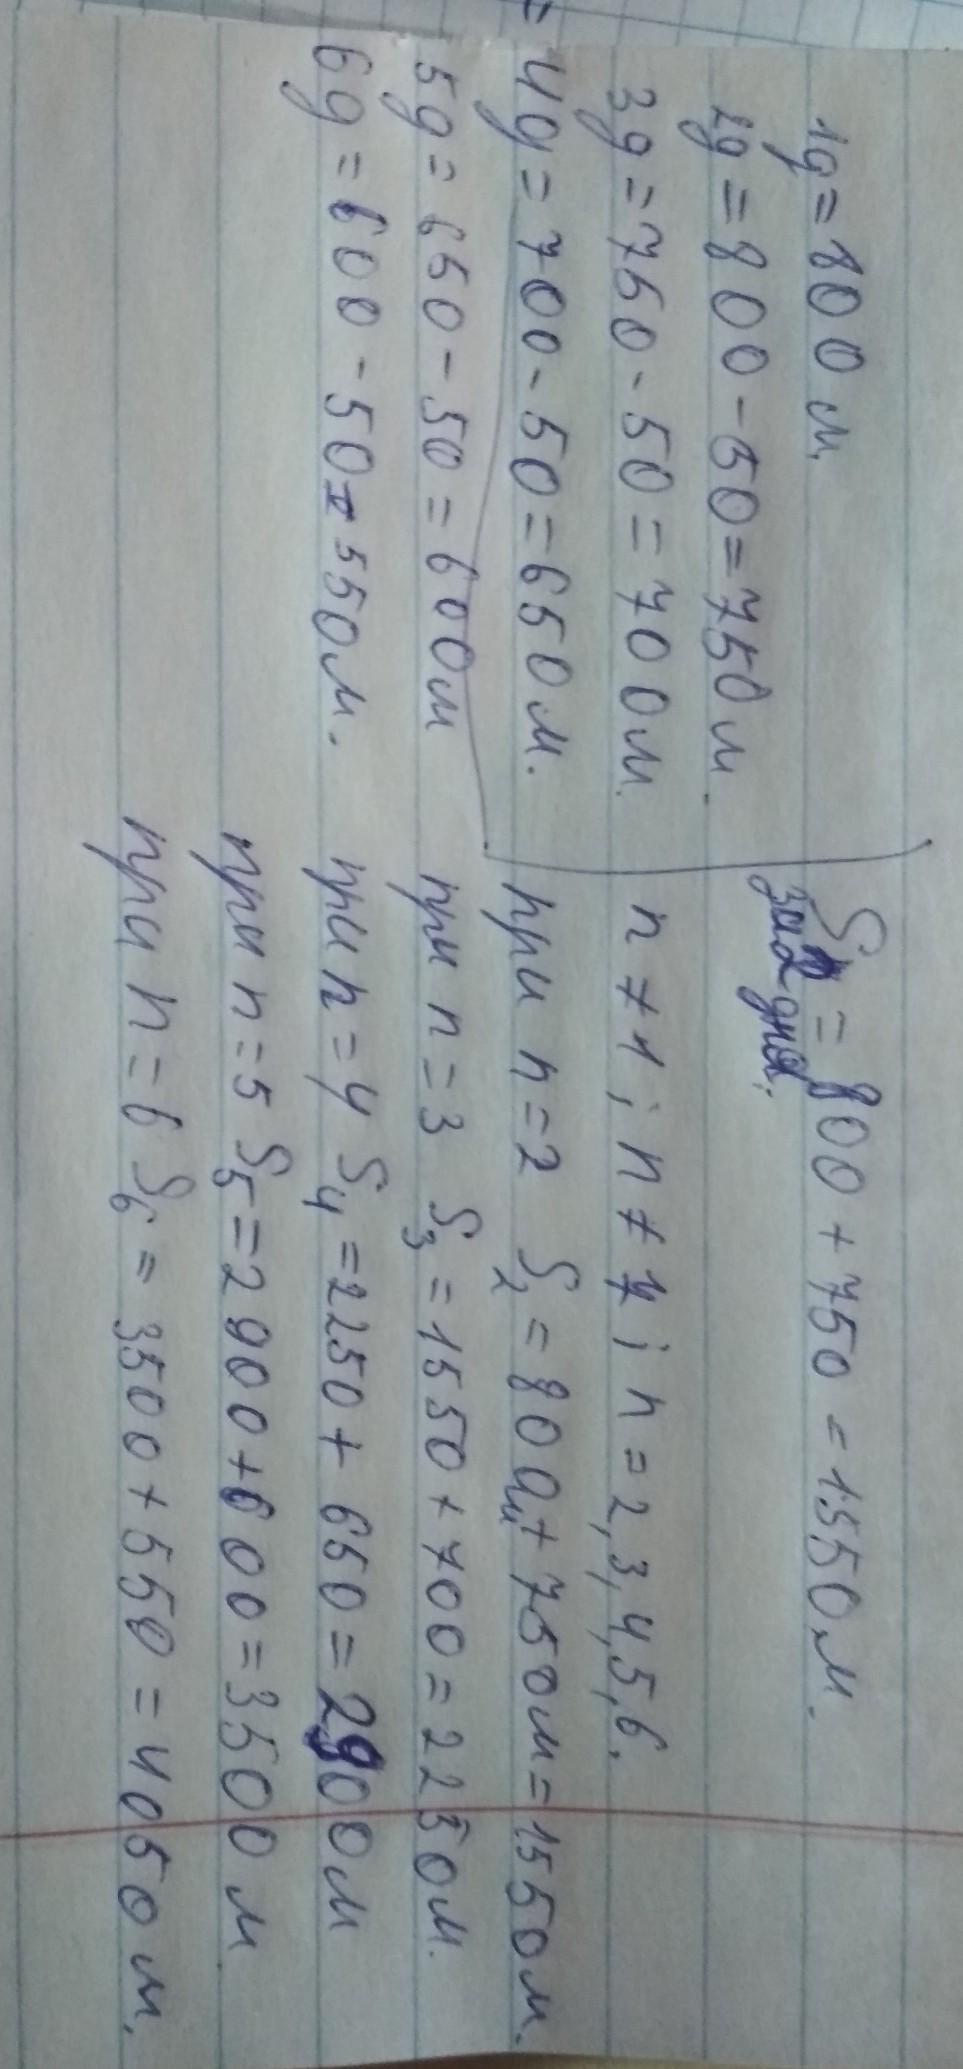 1g = 800 м.
2g = 800 - 50 = 750 м.
3g = 750 - 50 = 700 м.
4g = 700 - 50 = 650 м.
5g = 650 - 50 = 600 м
6g = 600 - 50 = 550 м.
S = 800 + 750 = 1550 м.
за 2 дня:
n ≠ 1 ; n ≠ 7 ; n = 2, 3, 4, 5, 6.
при n = 2 S₂ = 800м + 750м = 1550 м.
при n = 3 S₃ = 1550 + 700 = 2250 м.
при n = 4 S₄ = 2250 + 650 = 2900 м
при n = 5 S₅ = 2900 + 600 = 3500 м
при n = 6 S₆ = 3500 + 550 = 4050 м.